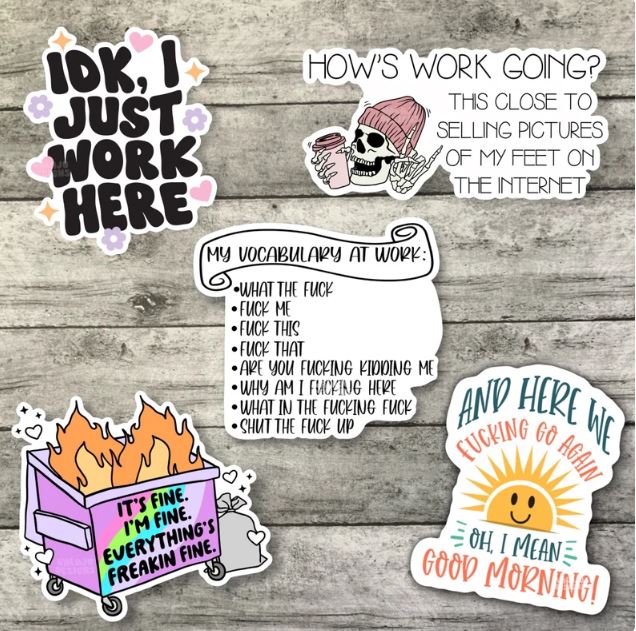 IDK, I
JUST
WORK
HERE
HOW'S WORK GOING?
THIS CLOSE TO
SELLING PICTURES
OF MY FEET ON
THE INTERNET
MY VOCABULARY AT WORK:
•WHAT THE FUCK
•FUCK ME
•FUCK THIS
•FUCK THAT
•ARE YOU FUCKING KIDDING ME
•WHY AM I FUCKING HERE
•WHAT IN THE FUCKING FUCK
•SHUT THE FUCK UP
IT'S FINE.
I'M FINE.
EVERYTHING'S
FREAKIN FINE.
AND HERE WE
FUCKING GO AGAIN
OH, I MEAN
GOOD MORNING!